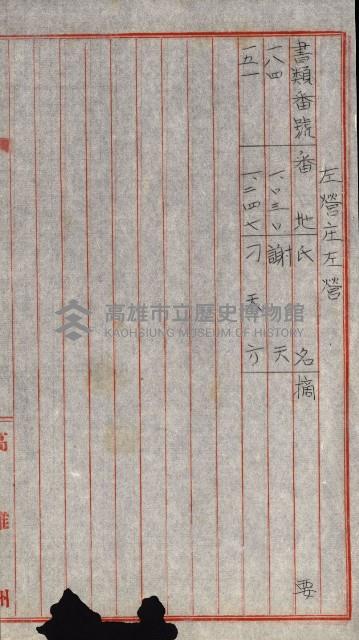 左營庄左營
書類番號 番地 氏名 摘要
一八四 一、〇三〇 謝天
一五一 一、二四七 刁天方
高雄州
高雄市立歷史博物館
KAOHSIUNG MUSEUM OF HISTORY